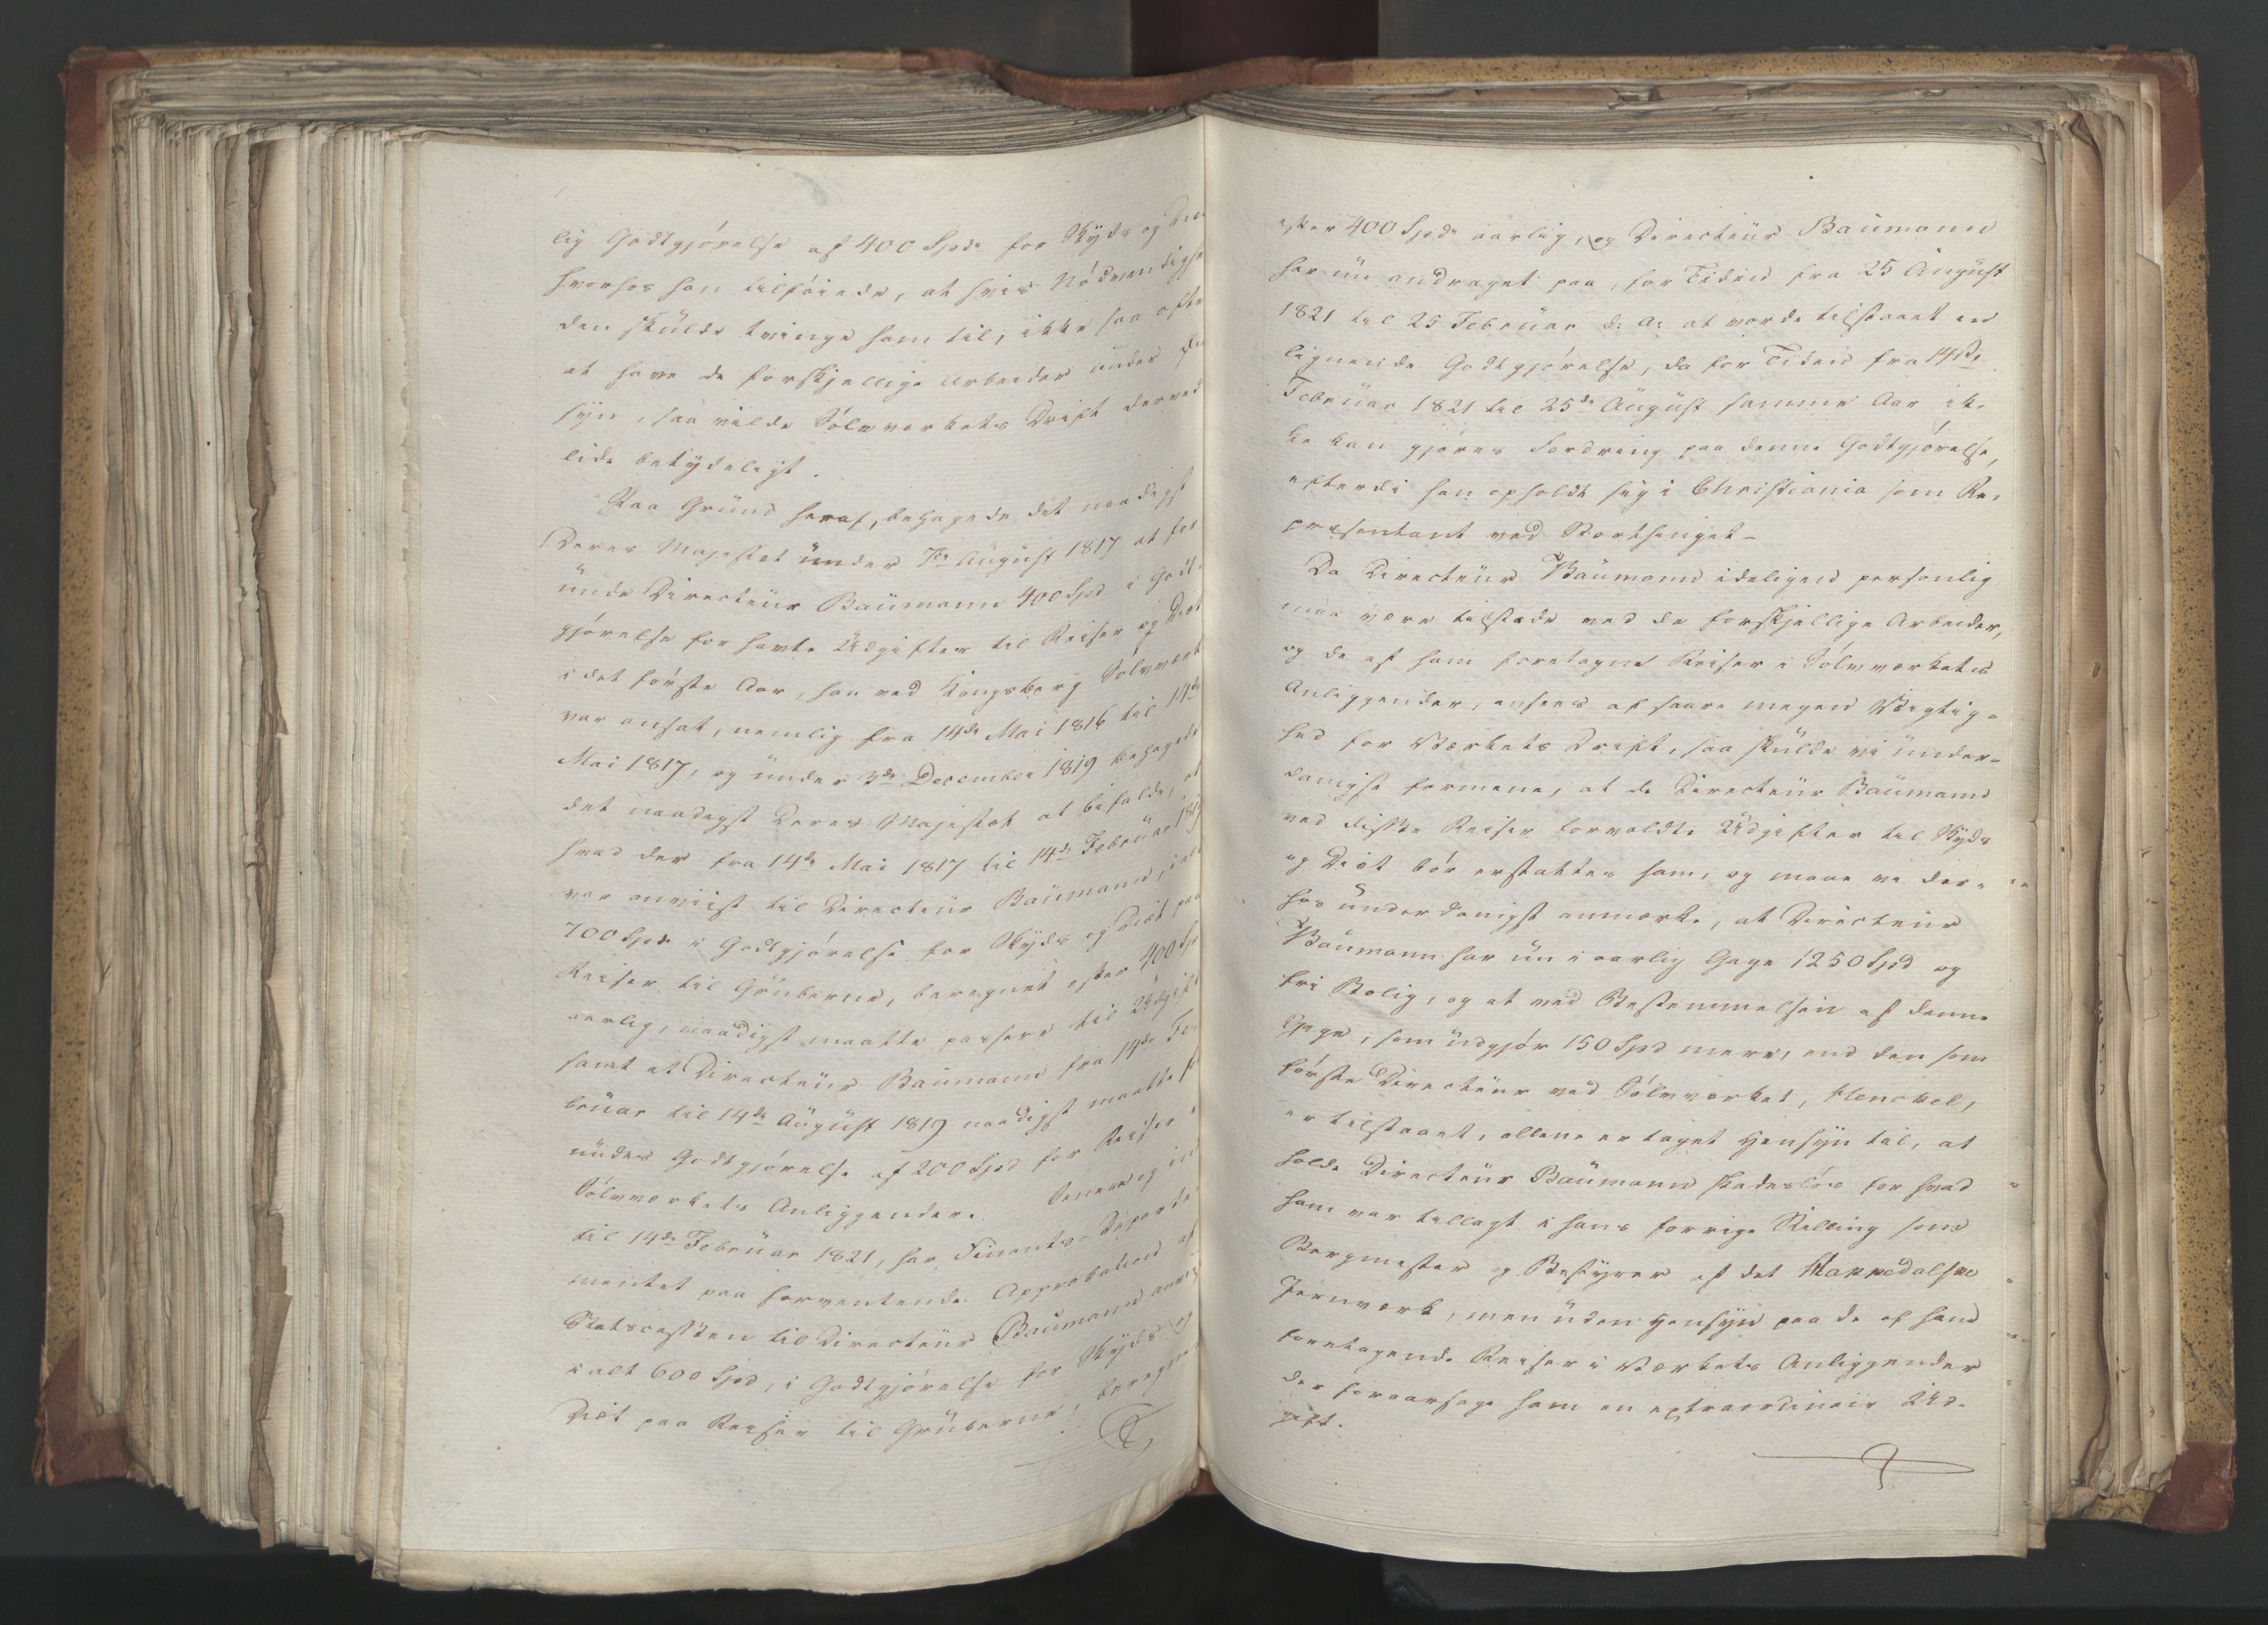 lig Godtgjörelse af 400 Spd. for Skyds og Diet
hvorhos han tilföiede, at hvis Nödvendighe
den skulde tvinge ham til, ikke saa ofte
at have de forskjellige Arbeider under Øie
syn, saa vilde Sölvværkets Drift derved
lide betydeligt.
Paa Grund heraf, behagede det naadigst
Deres Majestæt under 7de August 1817 at for
unde Directeur Baumann 400 Spd i Godt
gjörelse for havte Udgifter til Reiser og Diæt
i det förste Aar, han ved Kongsberg Sölvværk
var ansat, nemlig fra 14de Mai 1816 til 14de
Mai 1817, og under 3de December 1819 behagede
det naadigst Deres Majestæt at bifalde, at
hvad der fra 14de Mai 1817 til 14de Februar 1819
var anviist til Directeur Baumann, i alt
700 Spd i Godtgjörelse for Skyds og Diæt paa
Reiser til Gruberne, beregnet efter 400 Sp
aarlig, naadigst maatte passere til Udgift
samt at Directeur Baumann fra 14de Fe
bruar til 14de August 1819 naadigst maatte for
undes Godtgjörelse af 200 Spd for Reiser i
Sölvværkets Anliggender. Senere og ind
til 14de Februar 1821, har Finants-Departe
mentet paa forventende Approbation af
Statscassen til Directeur Baumann anvist
i alt 600 Spd, i Godtgjörelse for Skyds og
Diæt paa Reiser til Gruberne, beregnet
efter 400 Spd aarlig, og Directeur Baumann
har nu andraget paa, for Tiden fra 25 August
1821 til 25 Februar d. A. at vorde tilstaaet en
lignende Godtgjörelse, da for Tiden fra 14de
Februar 1821 til 25de August samme Aar ik-
ke kan gjöres Fordring paa denne Godtgjörelse,
efterdi han opholdt sig i Christiania som Re-
præsentant ved Storthinget-
Da Directeur Baumann ideligen personlig
maa være tilstæde ved de forskjellige Arbeider,
og de af ham foretagne Reiser i Sölvværkets
Anliggender, ansees af saare megen Vigtig-
hed for Værkets Drift, saa skulde vi under-
danigst formene, at de Directeur Baumann
ved disse Reiser forvoldte Udgifter til Skyds
og Diæt bör erstattes ham, og maae vi der-
hos underdanigst anmærke, at Directeur
Baumann har nu i aarlig Gage 1250 Spd og
fri Bolig, og at ved Bestemmelsen af denne
Gage, som udgjör 150 Spd mere, end den som
förste Directeur ved Sölvværket, Henckel,
er tilstaaet, allene er taget Hensyn til, at
holde Directeur Baumann skadeslös for hvad
ham var tillagt i hans forrige Stilling som
Bergmester og Bestyrer af det
Jernværk, men uden Hensyn paa de af ham
foretagende Reiser i Værkets Anliggender
der foraarsage ham en extraordinair Ud-
gift.